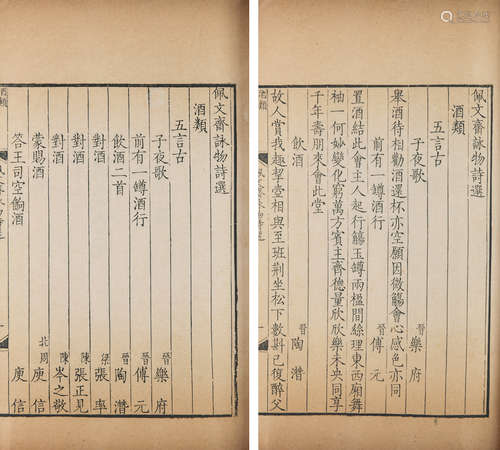 佩文齋詠物詩選
酒類
五言古
子夜歌 晉 樂府
前有一罇酒行 晉 傅元
飲酒二首 晉 陶潛
對酒 梁 張率
對酒 陳 張正見
對酒 陳 岑之敬
蒙賜酒 北周 庾信
答王司空餉酒 庾信
佩文齋詠物詩選
酒類
五言古
子夜歌 晉 樂府
舉酒待相勸酒還杯亦空願因微觴會心感色亦同
前有一罇酒行 晉 傅元
置酒結此會主人起行觴玉罇兩楹間絲理東西廂舞
袖一何妙變化窮萬方賓主齊德量欣欣樂未央同享
千年壽朋來會此堂
飲酒 晉 陶潛
故人賞我趣挈壺相與至班荊坐松下數斟已復醉父